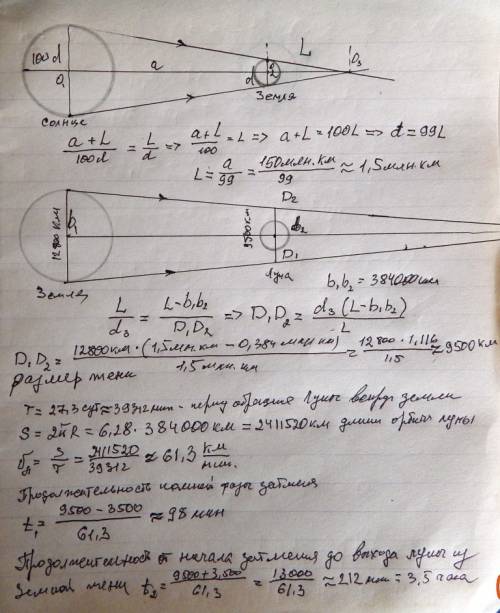 100d
a
L
d
O₁
O₂
O₃
Земля
Солнце
(a+L)/100d = L/d => (a+L)/100 = L => a+L = 100L => d = 99L
L = a/99 = 150млн.км/99 ≈ 1,5млн.км
D₂
12800 км
b₁
9500км
b₂
D₁
Луна
Земля
b₁b₂ = 384000км
L/d₃ = (L-b₁b₂)/D₁D₂ => D₁D₂ = d₃(L-b₁b₂)/L
D₁D₂ = 12800км·(1,5млн.км - 0,384 млн км)/1,5млн.км = 12800·1,116/1,5 ≈ 9500км
размер тени
T = 27,3 сут ≈ 39312 мин - период обращения Луны вокруг земли
S = 2πR = 6,28·384000 км = 2411520км длина орбиты луны
= S/T = 2411520/39312 ≈ 61,3 км/мин.
Продолжительность полной фазы затмения
t₁ = (9500-3500)/61,3 ≈ 98 мин
Продолжительность от начала затмения до выхода луны из
земной тени t₂ = (9500+3,500)/61,3 = 13000/61,3 ≈ 212 мин = 3,5 часа